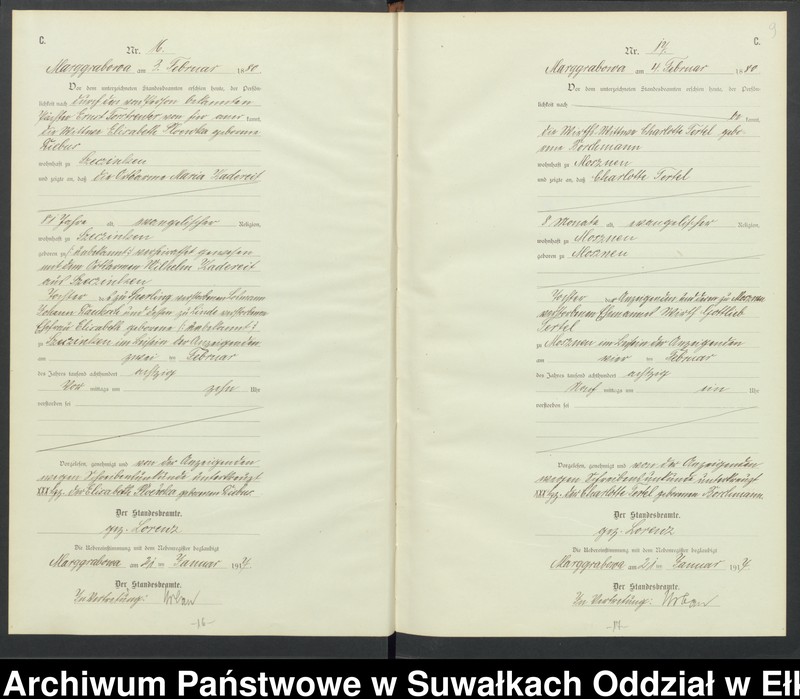 C.
Nr. 16.
Marggrabowa am 3. Februar 1880
Vor dem unterzeichneten Standesbeamten erschien heute, der Persön-
lichkeit nach durch den
kannt,
die Wittwe Elisabeth geborene
wohnhaft zu Szczinken
und zeigte an, daß die Ortsarme Maria Zadereit
81 Jahre alt, evangelischer Religion,
wohnhaft zu Szczinken
geboren zu (: unbekannt :) verheirathet gewesen
mit dem Ortsarmen Wilhelm Zadereit
aus Szczinken
Tochter des zu verstorbenen
Johann und dessen zu verstorbenen
Ehefrau Elisabeth geborene (: unbekannt :)
zu Szczinken im Beisein der Anzeigenden
am zwei ten Februar
des Jahres tausend achthundert achtzig
Vor mittags um zehn Uhr
verstorben sei
Vorgelesen, genehmigt und von der Anzeigenden
wegen Schreibensunkunde unterkreuzt
XXX Hdz. der Elisabeth geborenen
Der Standesbeamte.
gez. Lorenz
Die Uebereinstimmung mit dem Nebenregister beglaubigt
Marggrabowa am 21 ten Januar 1914.
Der Standesbeamte.
In Vertretung: Urban
-16-
9
C.
Nr. 17.
Marggrabowa am 4. Februar 1880
Vor dem unterzeichneten Standesbeamten erschien heute, der Persön-
lichkeit nach
be kannt,
die Wirths Wittwe Charlotte Tertel gebo-
rene Nordmann
wohnhaft zu Moznen
und zeigte an, daß Charlotte Tertel
8 Monate alt, evangelischer Religion,
wohnhaft zu Moznen
geboren zu Moznen
Tochter der Anzeigenden und deren zu Moznen
verstorbenen Ehemannes Wirth Gottlieb
Tertel
zu Moznen im Beisein der Anzeigenden
am vier ten Februar
des Jahres tausend achthundert achtzig
Nach mittags um ein Uhr
verstorben sei
Vorgelesen, genehmigt und von der Anzeigenden
wegen Schreibensunkunde unterkreuzt
XXX Hdz. der Charlotte Tertel geborenen Nordmann
Der Standesbeamte.
gez. Lorenz
Die Uebereinstimmung mit dem Nebenregister beglaubigt
Marggrabowa am 21 ten Januar 1914.
Der Standesbeamte.
In Vertretung: Urban
-17-
Archiwum Państwowe w Suwałkach Oddział w Eł